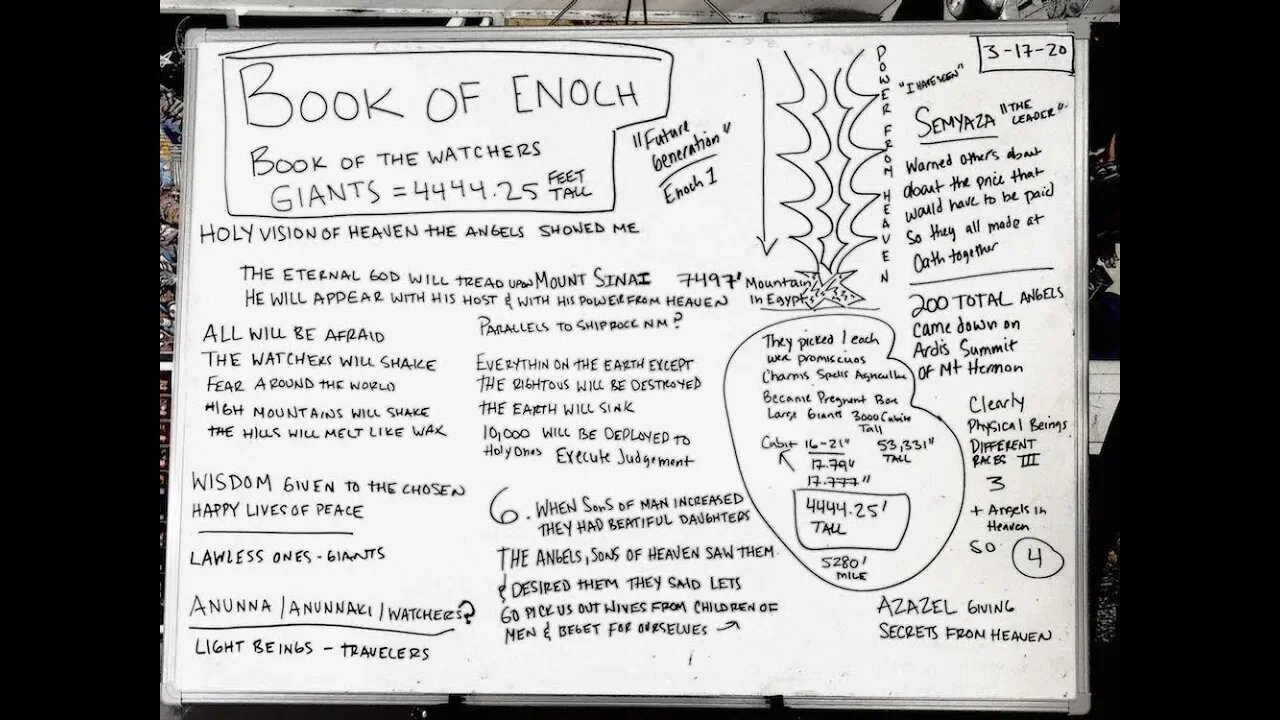 BOOK OF ENOCH
BOOK OF THE WATCHERS
GIANTS = 4444.25 FEET TALL
"Future
Generation"
Enoch 1
HOLY VISION OF HEAVEN THE ANGELS SHOWED ME
THE ETERNAL GOD WILL TREAD UPON MOUNT SINAI 7497'
HE WILL APPEAR WITH HIS HOST & WITH HIS POWER FROM HEAVEN
Mountain
in Egypt
POWER FROM HEAVEN
ALL WILL BE AFRAID
THE WATCHERS WILL SHAKE
FEAR AROUND THE WORLD
HIGH MOUNTAINS WILL SHAKE
THE HILLS WILL MELT LIKE WAX
WISDOM GIVEN TO THE CHOSEN
HAPPY LIVES OF PEACE
LAWLESS ONES - GIANTS
ANUNNA/ANUNNAKI/WATCHERS?
LIGHT BEINGS - TRAVELERS
PARALLELS TO SHIPROCK NM?
EVERYTHIN ON THE EARTH EXCEPT
THE RIGHTOUS WILL BE DESTROYED
THE EARTH WILL SINK
10,000 WILL BE DEPLOYED TO
Holy Ones EXECUTE JUDGEMENT
6. WHEN SONS OF MAN INCREASED
THEY HAD BEATIFUL DAUGHTERS
THE ANGELS, SONS OF HEAVEN SAW THEM
& DESIRED THEM THEY SAID LETS
GO PICK US OUT WIVES FROM CHILDREN OF
MEN & BEGET FOR OURSELVES
They picked 1 each
were promiscious
Charms Spells
Became Pregnant Bore
Large Giants 3000 Cubits
Tall
Cubit 16-21" 53,331"
TALL
17.794
17.777"
4444.25'
TALL
5280'
MILE
3-17-20
"I HAVE SEEN"
SEMYAZA "THE
LEADER"
Warned others about
about the price that
would have to be paid
So they all made at
Oath together
200 TOTAL ANGELS
came down on
Ardis Summit
of Mt Hermon
Clearly
Physical Beings
DIFFERENT
RACES III
3
+ Angels in
Heaven
SO 4
AZAZEL GIVING
SECRETS FROM HEAVEN